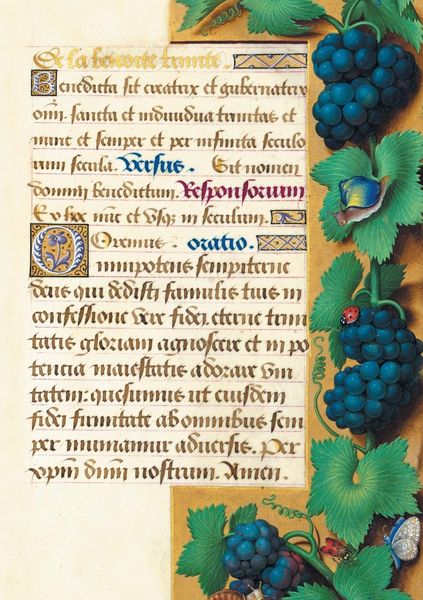 De la benoite trinite.
Benedicta sit creatrix et gubernatrix
om̄. sancta et indiuidua trinitas et
nunc et semper et per infinita seculo
rum secula. Versus. Sit nomen
domini benedictum. Responsorium
Ex hoc nūc et vsq; in seculum.
Oremus. oratio.
Omnipotens sempiterne
deus qui dedisti famulis tuis in
confessione vere fidei. eterne trini
tatis gloriam agnoscere et in po
tencia maiestatis adorare vni
tatem: quesumus ut eiusdem
fidei firmitate ab omnibus sem
per muniamur aduersis. Per
xpm̄ dnm̄ nostrum. Amen.